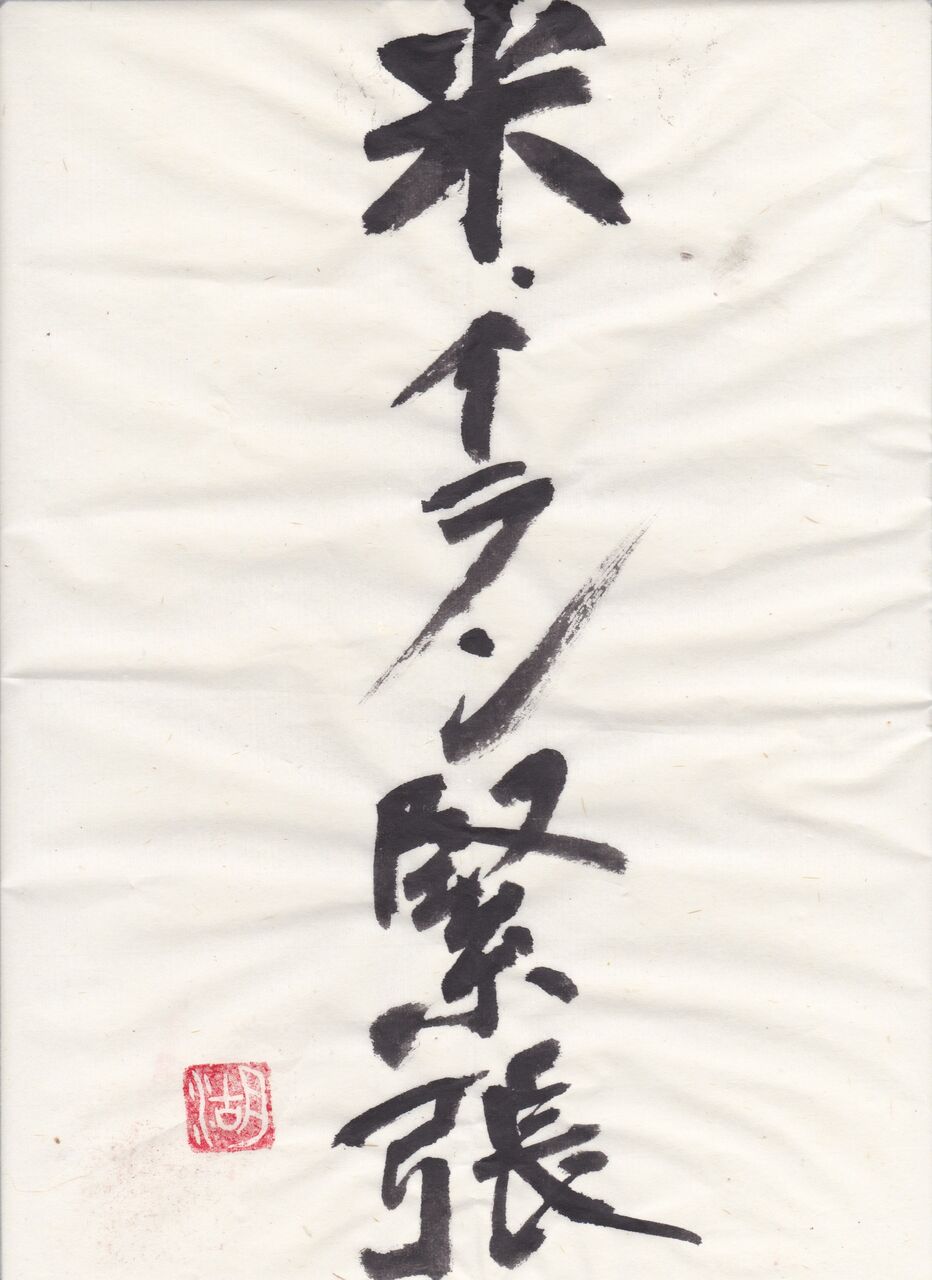 米・イラン緊張
湖